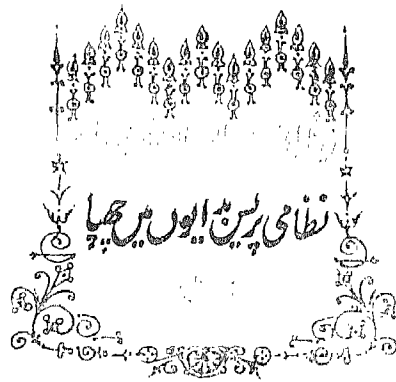 نظامی پریس بدایوں میں چھپا